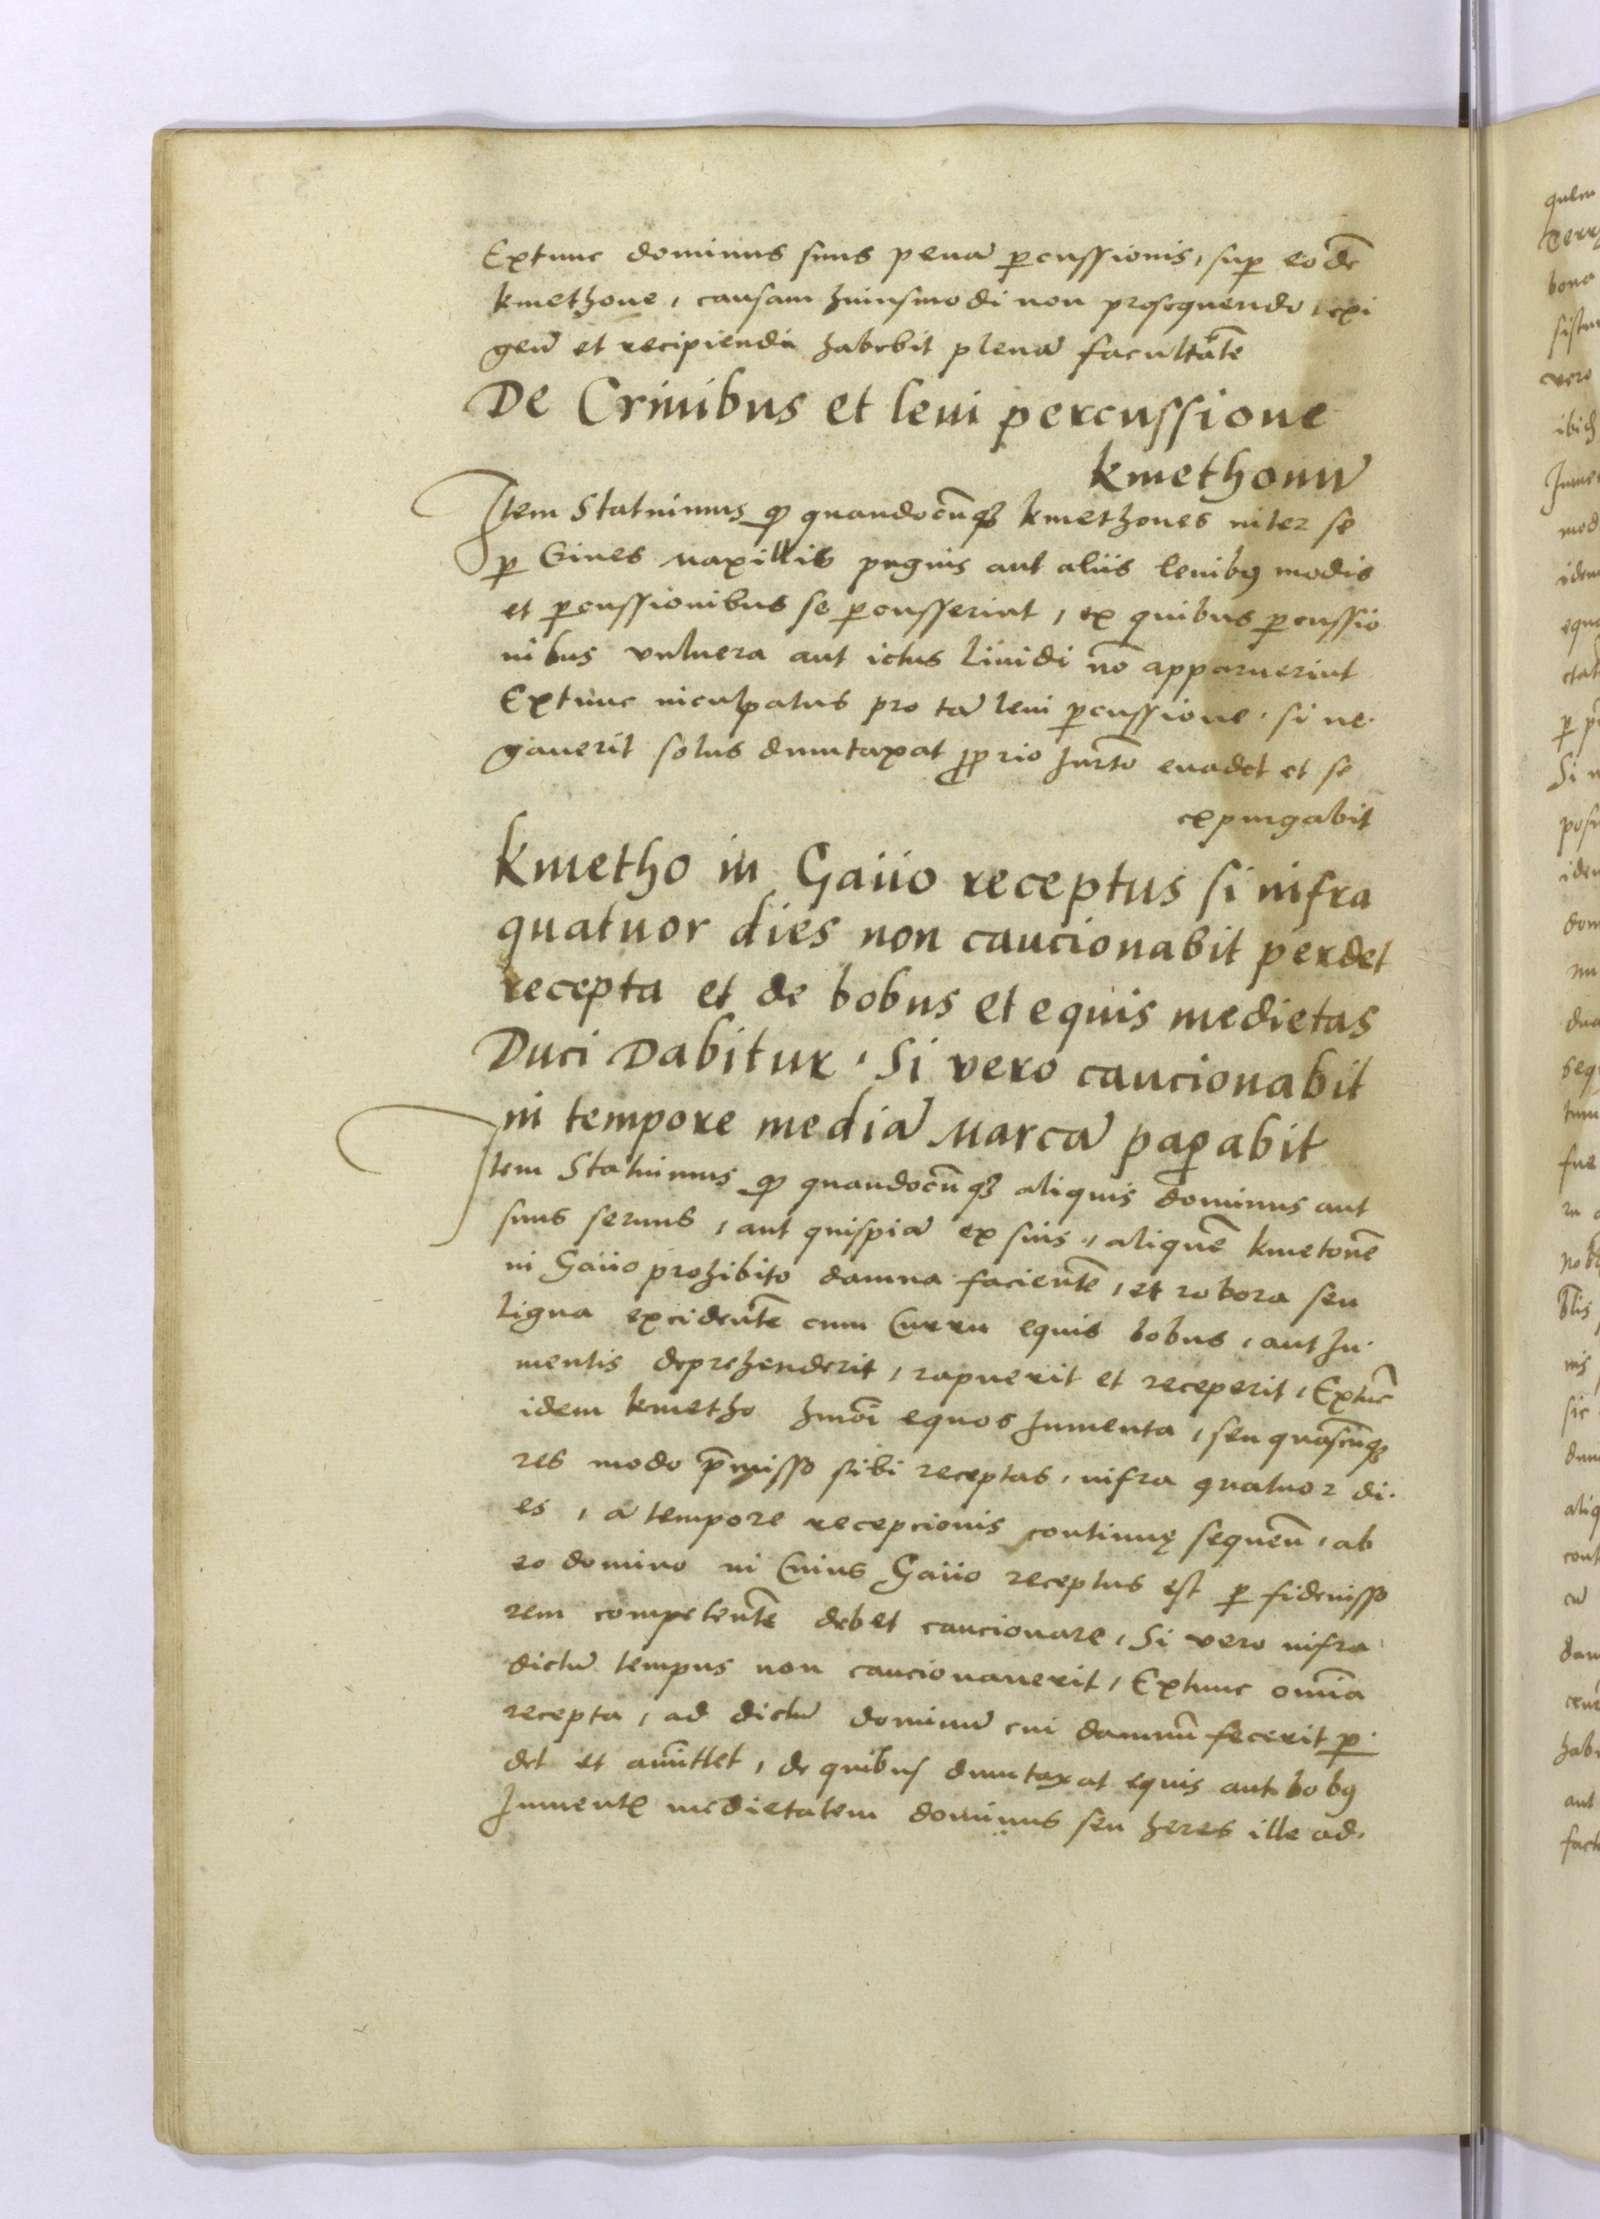 Extunc dominus suus penã ꝑcussionis, suꝑ eodẽ
kmethone, causam huiusmodi non prosequendo, exi
gen̄ et recipiendi habebit plenã facultãtẽ
De Crinibus et leui percussione
kmethonũ
Item Statuimus ꝙ quandocũqȝ kmethones inter se
ꝑ Crines maxillis pugnis aut aliis leuibꝰ modis
et ꝑcussionibus se ꝑcusserint, ex quibus ꝑcussio
nibus vulnera aut ictus Liuidi nõ apparuerint
Extunc inculpatus pro tã leui ꝑcussione. si ne.
gauerit solus dumtaxat ꝓprio Jurtõ euadet et se
expurgabit
Kmetho in Gaiio receptus si infra
quatuor dies non caucionabit perdet
recepta et de bobus et equis medietas
Duci Dabitur. Si vero caucionabit
in tempore mediã Marcã paꝑabit
Item Statuimus ꝙ quandocũqȝ aliquis dominus aut
suus seruus, aut quispiã ex suis, aliquẽ kmetonẽ
in Gaiio prohibito damna facientẽ, et robora seu
ligna excidentẽ cum Curru equis bobus, aut Ju.
mentis deprehenderit, rapuerit et receperit, Extũc
idem kmetho hmõi equos Jumenta, seu quascũqȝ
res modo p̃misso sibi receptas, infra quatuor di.
es, a tempore recepcionis continuę sequen̄, ab
eo domino in Cuius Gaiio receptus est ꝑ fideiusso
rem competentẽ debet caucionare, Si vero infra
dictũ tempus non caucionauerit, Extunc omĩa
recepta, ad dictũ dominũ cui damnũ fecerit ꝑ.
det et amittet, de quibus dumtaxat equis aut bobꝰ
Jumentꝭ medietatem dominus seu heres ille ad.